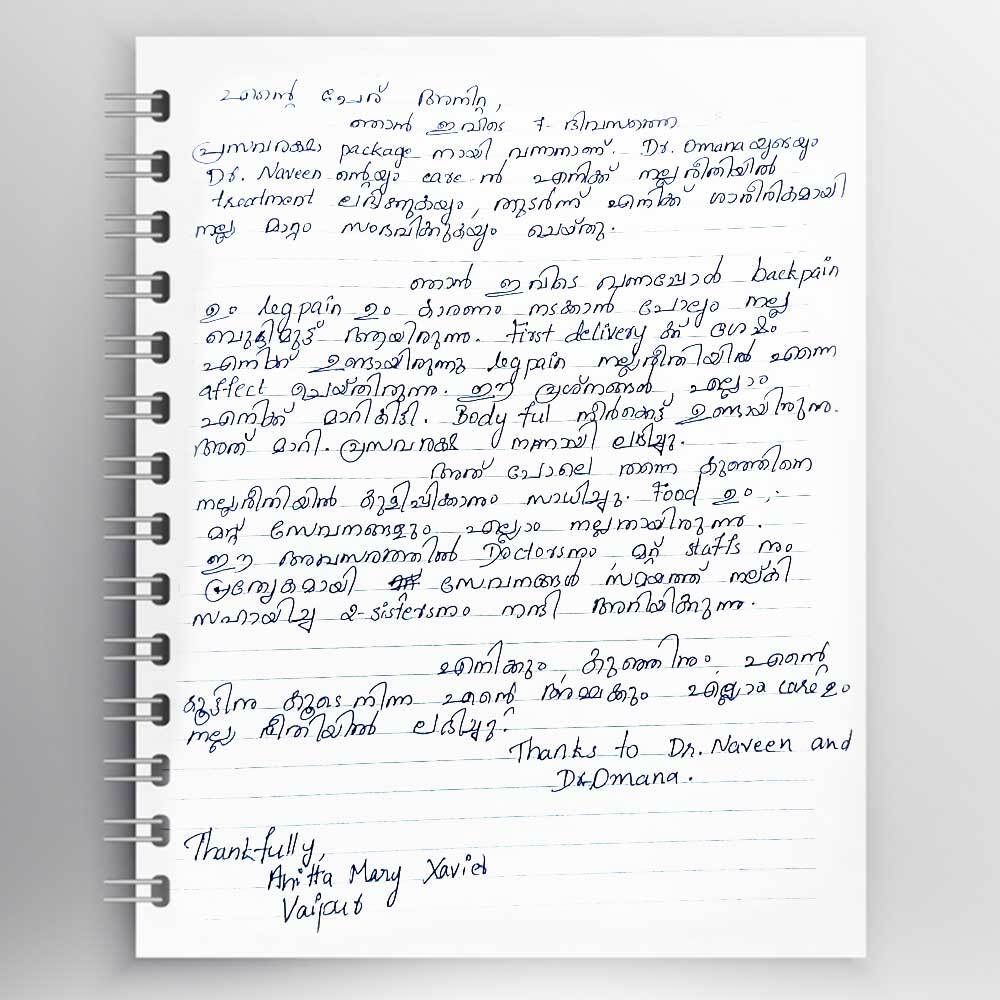 എന്റെ പേര് അനിറ്റ,
ഞാൻ ഇവിടെ 7- ദിവസത്തെ
പ്രസവരക്ഷാ package നായി വന്നതാണ്. Dr. Omana യുടെയും
Dr. Naveen ന്റെയും care ൽ എനിക്ക് നല്ലരീതിയിൽ
treatment ലഭിക്കുകയും, തുടർന്ന് എനിക്ക് ശാരീരികമായി
നല്ല മാറ്റം സംഭവിക്കുകയും ചെയ്തു.
ഞാൻ ഇവിടെ വന്നപ്പോൾ backpain
ഉം legpain ഉം കാരണം നടക്കാൻ പോലും നല്ല
ബുദ്ധിമുട്ട് ആയിരുന്നു. First delivery ക്ക് ശേഷം
എനിക്ക് ഉണ്ടായിരുന്നു legpain നല്ലരീതിയിൽ എന്നെ
affect ചെയ്തിരുന്നു. ഈ പ്രശ്നങ്ങൾ എല്ലാം
എനിക്ക് മാറികിട്ടി. Body ful നീർക്കെട്ട് ഉണ്ടായിരുന്നു.
അത് മാറി. പ്രസവരക്ഷ നന്നായി ലഭിച്ചു.
അത് പോലെ തന്നെ കുഞ്ഞിനെ
നല്ലരീതിയിൽ കുളിപ്പിക്കാനും സാധിച്ചു. Food ഉം,
മറ്റ് സേവനങ്ങളും എല്ലാം നല്ലതായിരുന്നു.
ഈ അവസരത്തിൽ Doctorsനും, മറ്റ് staffs നും
പ്രത്യേകമായി സേവനങ്ങൾ സമയത്ത് നല്കി
സഹായിച്ച 2-sistersനും നന്ദി അറിയിക്കുന്നു.
എനിക്കും, കുഞ്ഞിനും, എന്റെ
കൂട്ടിനു കൂടെ നിന്ന എന്റെ അമ്മക്കും എല്ലാം care ഉം
നല്ല രീതിയിൽ ലഭിച്ചു.
Thanks to Dr. Naveen and
Dr.Omana.
Thankfully,
Anitta Mary Xavier